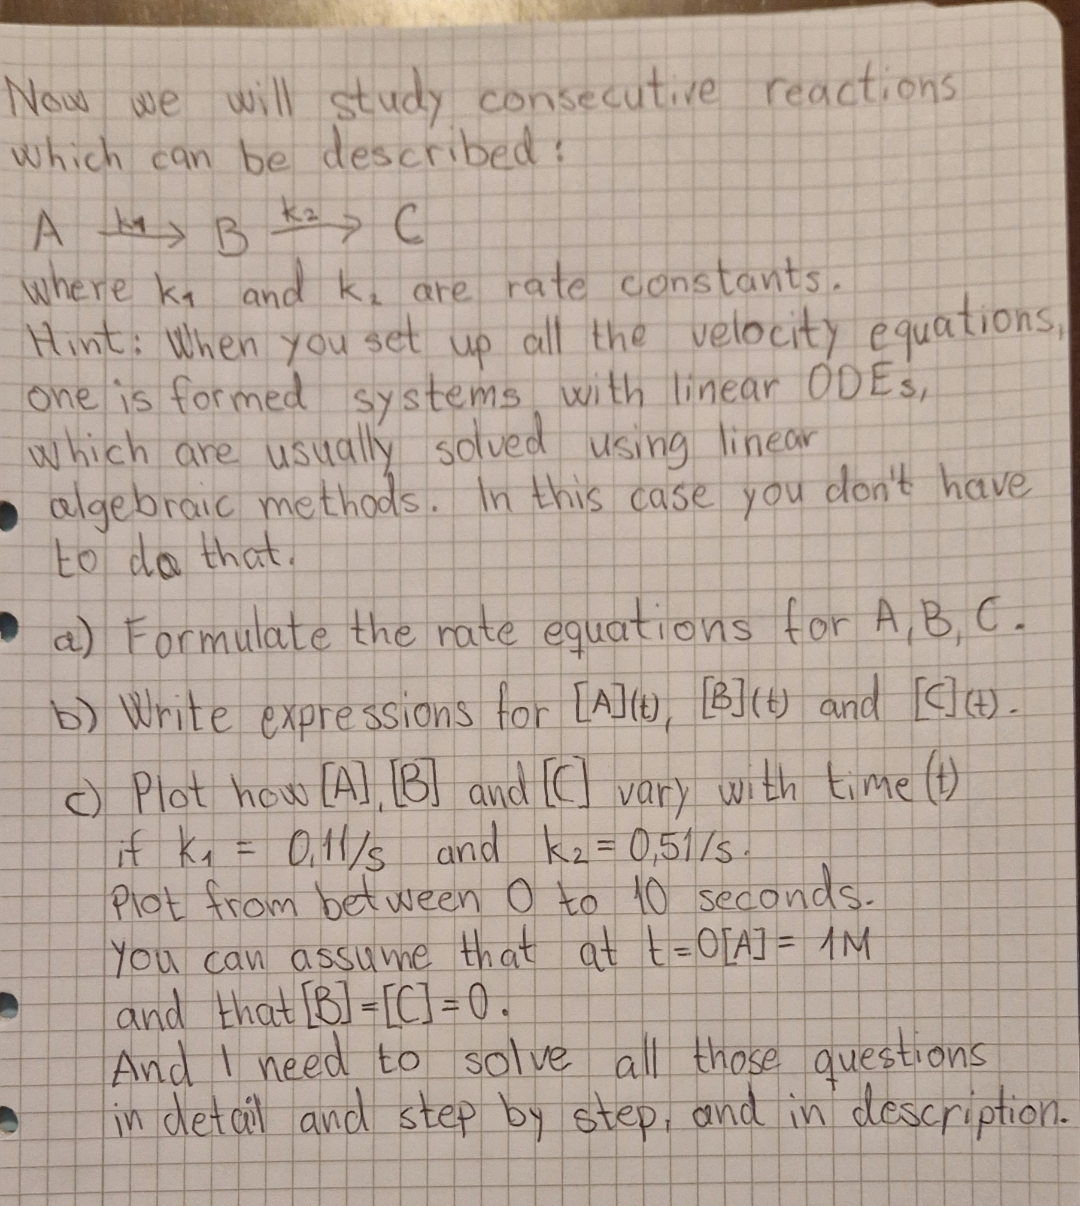 Now we will study consecutive reactions
which can be described:
A k1→ B k2→ C
where k1 and k2 are rate constants.
Hint: When you set up all the velocity equations,
one is formed systems with linear ODEs,
which are usually solved using linear
algebraic methods. In this case you don't have
to do that.
a) Formulate the rate equations for A, B, C.
b) Write expressions for [A](t), [B](t) and [C](t).
c) Plot how [A], [B] and [C] vary with time (t)
if k1 = 0,11/s and k2 = 0,51/s.
Plot from between 0 to 10 seconds.
You can assume that at t=0[A] = 1M
and that [B]=[C]=0.
And I need to solve all those questions
in detail and step by step, and in description.